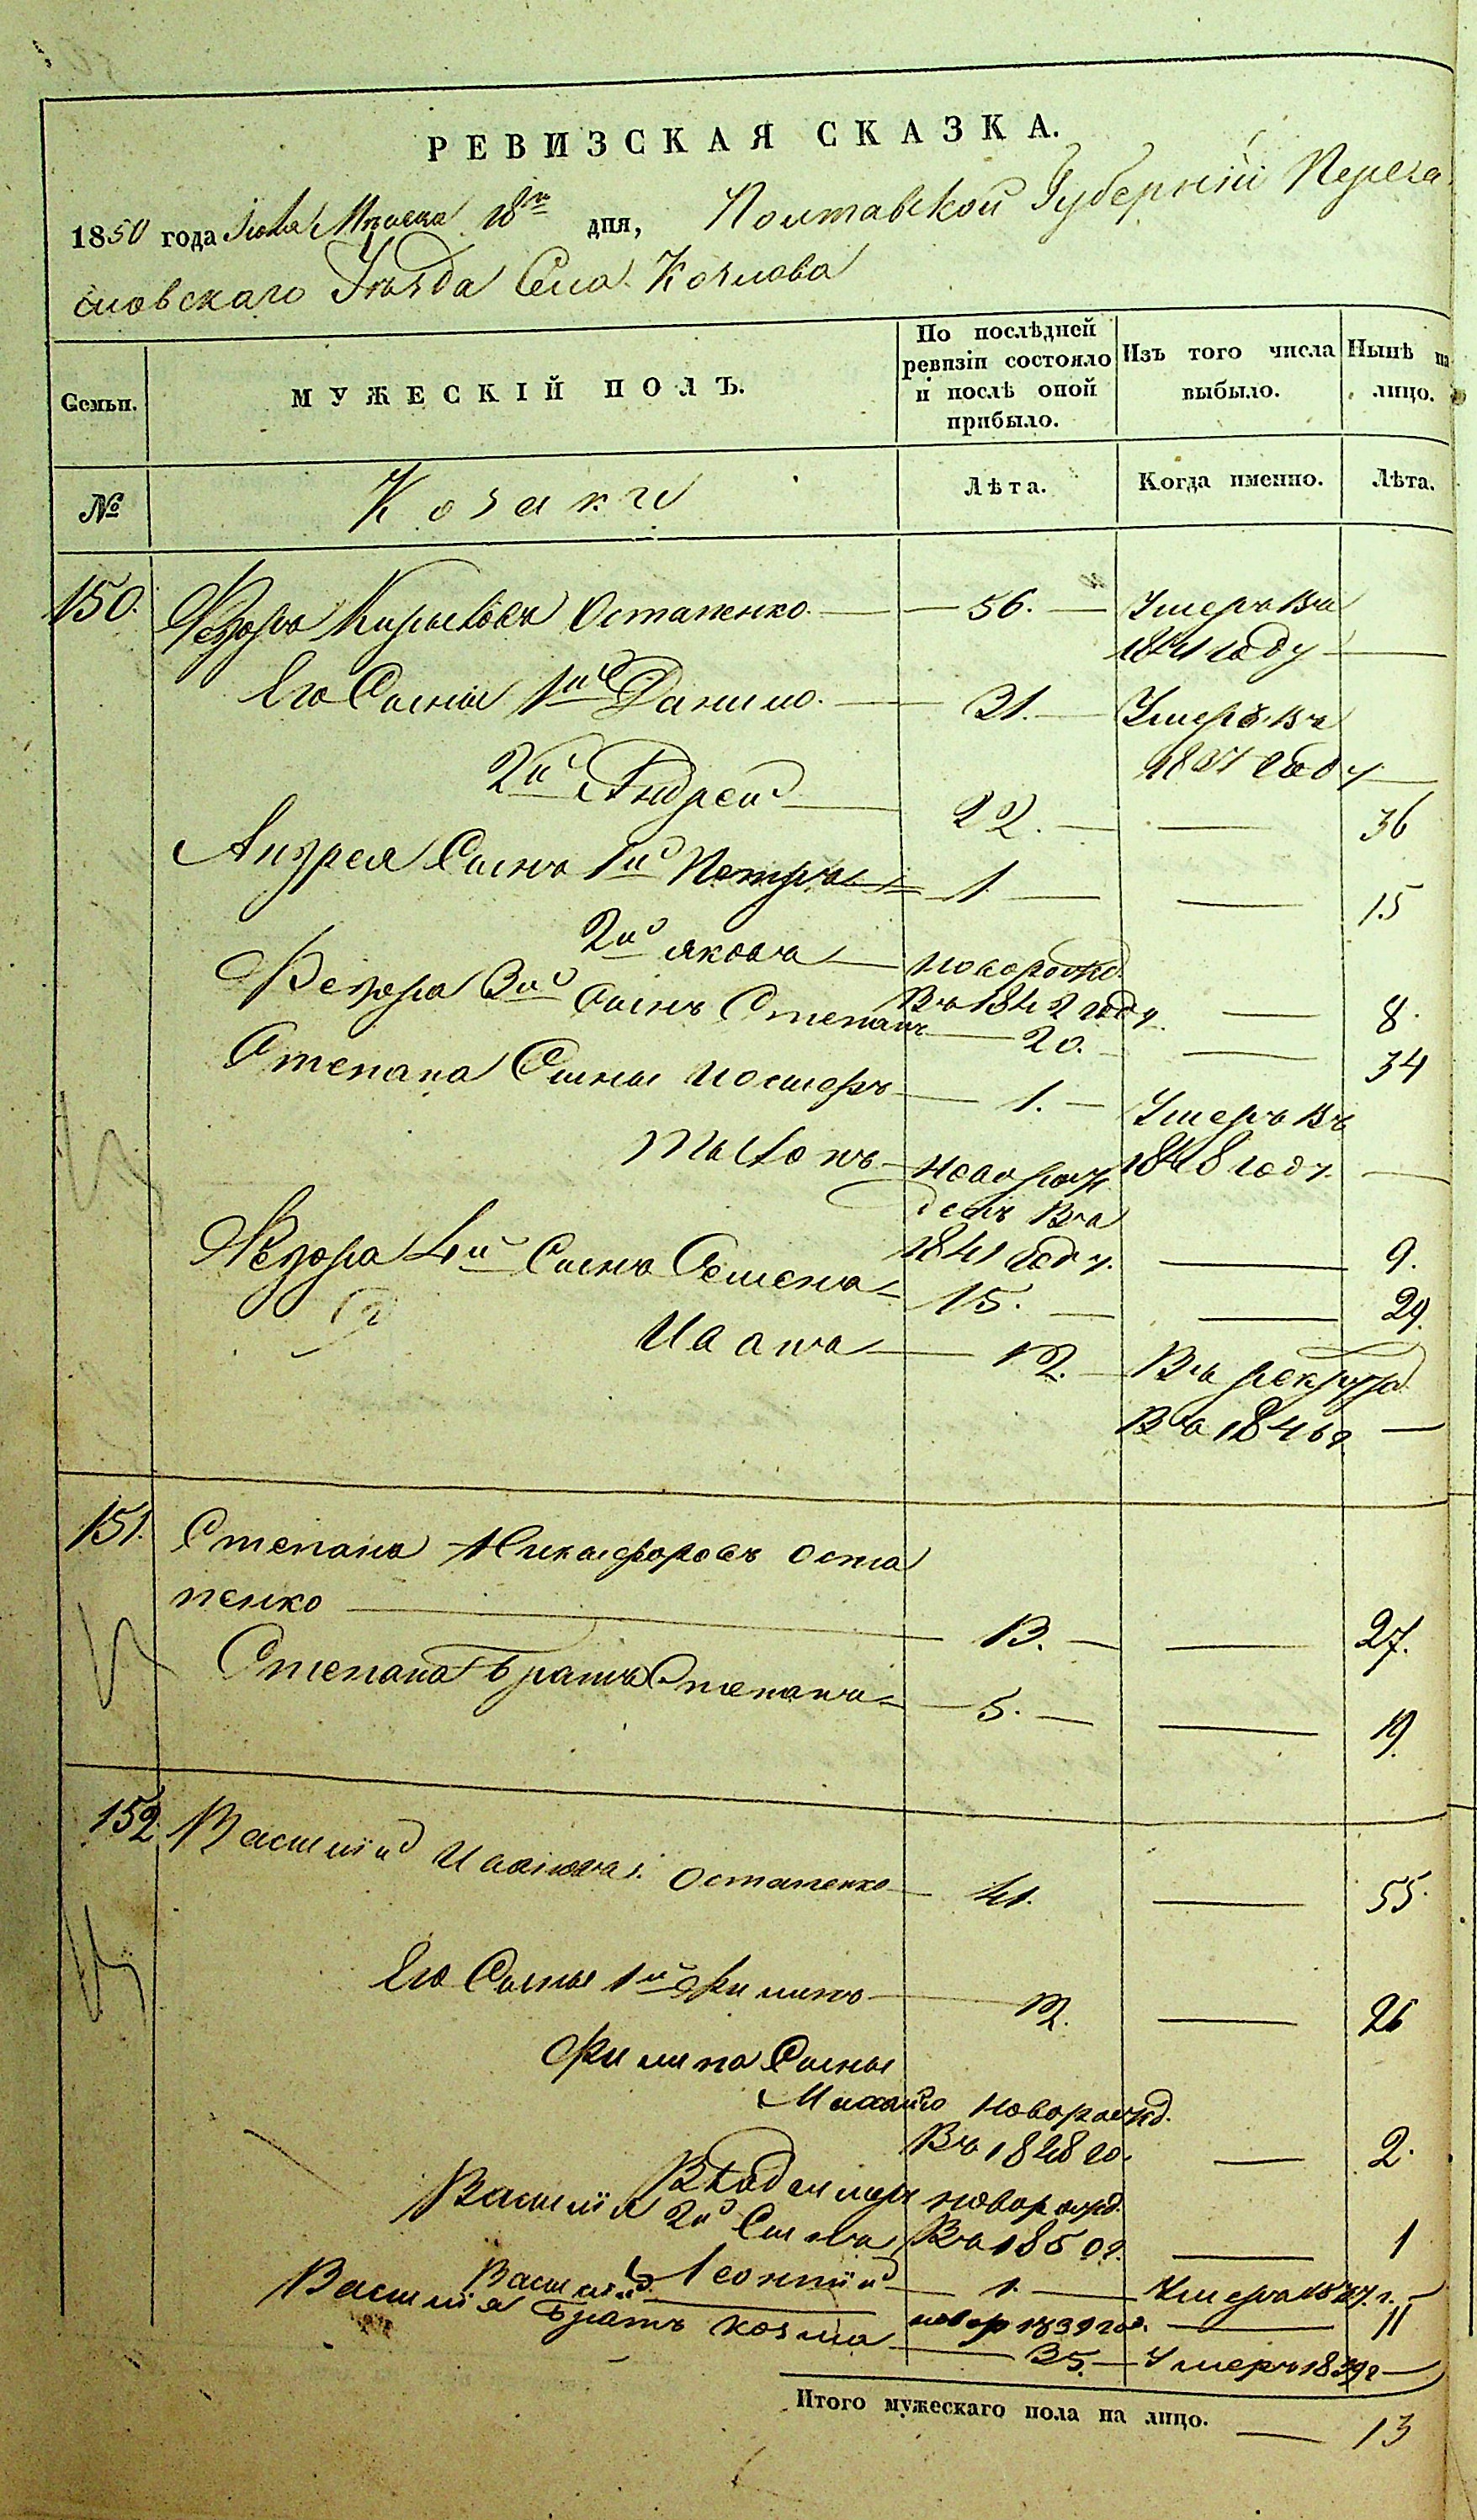 РЕВИЗСКАЯ СКАЗКА.
1850 года Мѣсяца 18го дня, Полтавской Губерніи Перея
славскаго Уѣзда Села Козлова
Семьи.
МУЖЕСКІЙ ПОЛЪ.
По послѣдней ревизіи состояло и послѣ оной прибыло.
Изъ того числа выбыло.
Нынѣ на лицо.
№ Козаки Лѣта. Когда именно. Лѣта.
150. Федоръ Остапенко. — 56. — Умеръ въ
1841 году —
Его Сыны 1й Данило. — 31. — Умеръ въ
1837 году —
2й Андрей — 22. — — 36
Андрея Сынъ 1й Петръ — 1 — — 15
2й Яковъ — новорожд.
въ 1842 году — 8.
Федора 3й Сынъ Степанъ — 20. — 34
Степана Сыны — 1. — Умеръ въ
1848 году. —
новорож
денъ въ
1841 году. — 9.
Федора 4й Сынъ Семенъ — 15. — — 29.
Иванъ — 12. — Въ рекруты
въ 1846г. —
151. Степанъ Никифоровъ Оста
пенко — 13. — — 27.
Степана братъ Степанъ — 5. — — 19.
152. Василій Ивановъ Остапенко — 41. — 55.
Его Сыны 1й Филипъ — 12. — 26
Филипа Сыны
Михайло новорожд.
въ 1848 го. — 2.
Владимиръ новорожд.
въ 1850г. — 1
Василія 2й Сынъ
Леонтій — 1. — Умеръ 1837.г. —
Василій — новор 1839 год. — 11
Василія братъ Козма — 35. — Умеръ 1839г —
Итого мужескаго пола на лицо. — 13